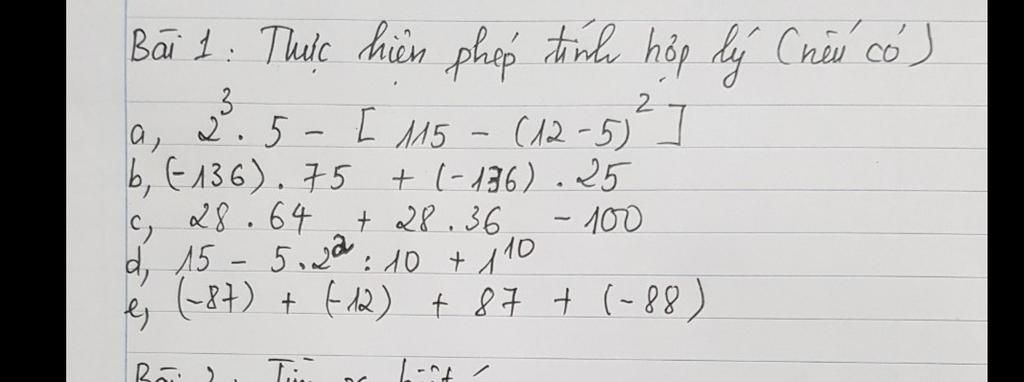 Bài 1: Thực hiện phép tính hợp lý (nếu có)
a, 2³ . 5 - [115 - (12 - 5)²]
b, (-136) . 75 + (-136) . 25
c, 28 . 64 + 28 . 36 - 100
d, 15 - 5 . 2² : 10 + 1¹⁰
e, (-87) + (-12) + 87 + (-88)
Bài 2: